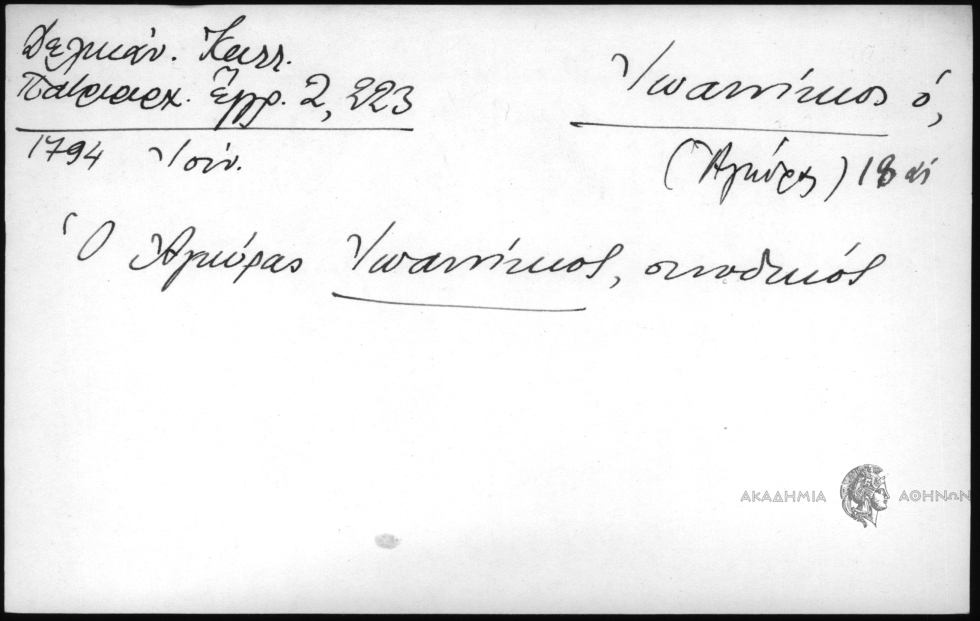 Δελικάν. Καλλ.
Πατριαρχ. Ἔγγρ. 2, 223
1794 Ἰούν.
Ἰωαννίκιος ὁ,
(Ἀγκύρας) 18 αἰ
Ὁ Ἀγκύρας Ἰωαννίκιος, συνοδικός
ΑΚΑΔΗΜΙΑ ΑΘΗΝΩΝ